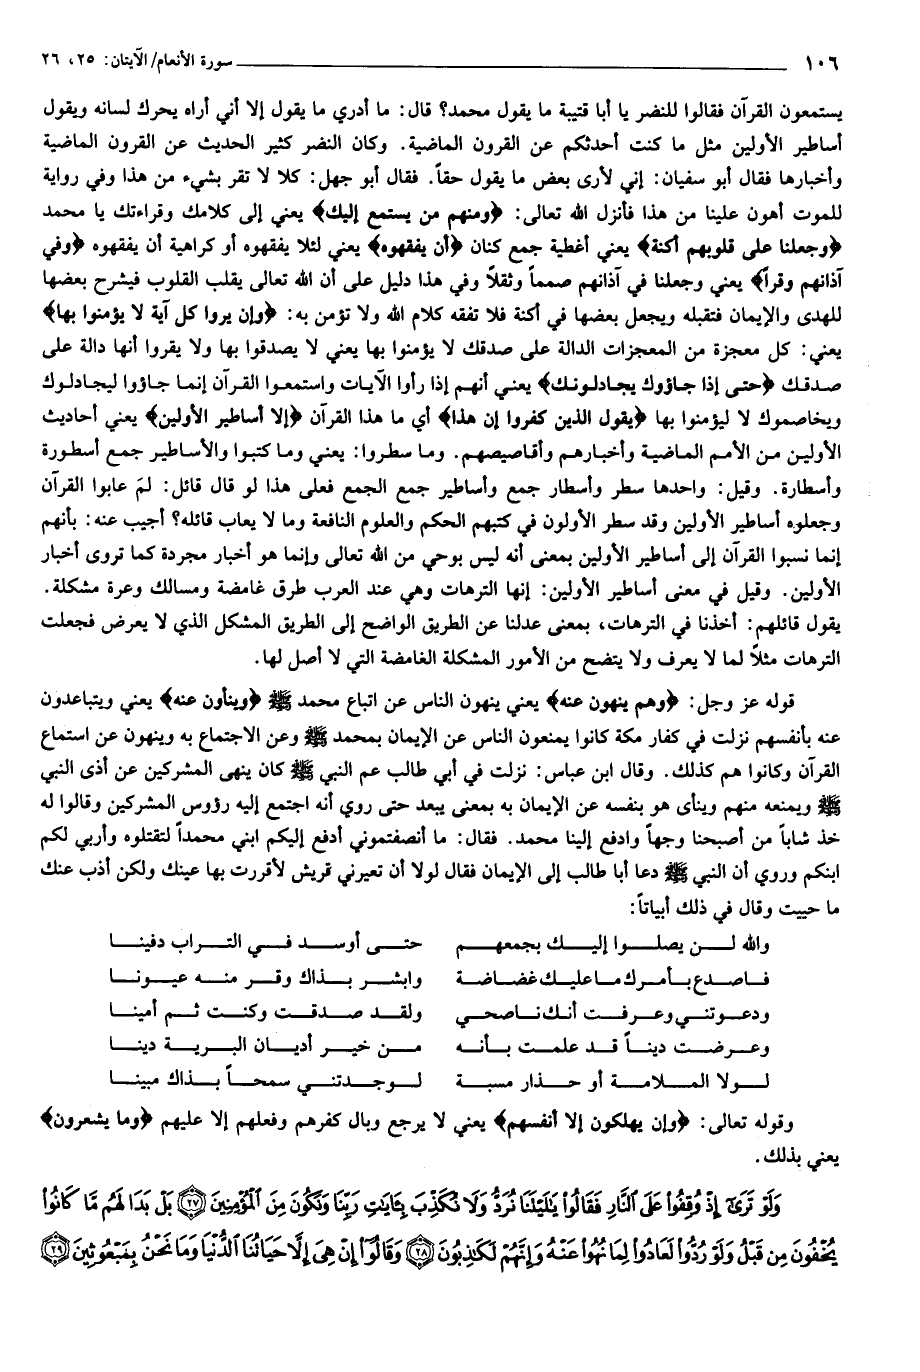 ١٠٦ سورة الأنعام/ الآيتان: ٢٥، ٢٦
يستمعون القرآن فقالوا للنضر يا أبا قتيبة ما يقول محمد؟ قال: ما أدري ما يقول إلا أني أراه يحرك لسانه ويقول
أساطير الأولين مثل ما كنت أحدثكم عن القرون الماضية. وكان النضر كثير الحديث عن القرون الماضية
وأخبارها فقال أبو سفيان: إني لأرى بعض ما يقول حقاً. فقال أبو جهل: كلا لا تقر بشيء من هذا وفي رواية
للموت أهون علينا من هذا فأنزل الله تعالى: ﴿ومنهم من يستمع إليك﴾ يعني إلى كلامك وقراءتك يا محمد
﴿وجعلنا على قلوبهم أكنة﴾ يعني أغطية جمع كنان ﴿أن يفقهوه﴾ يعني لئلا يفقهوه أو كراهية أن يفقهوه ﴿وفي
آذانهم وقراً﴾ يعني وجعلنا في آذانهم صمماً وثقلاً وفي هذا دليل على أن الله تعالى يقلب القلوب فيشرح بعضها
للهدى والإيمان فتقبله ويجعل بعضها في أكنة فلا تفقه كلام الله ولا تؤمن به: ﴿وإن يروا كل آية لا يؤمنوا بها﴾
يعني: كل معجزة من المعجزات الدالة على صدقك لا يؤمنوا بها يعني لا يصدقوا بها ولا يقروا أنها دالة على
صدقك ﴿حتى إذا جاؤوك يجادلونك﴾ يعني أنهم إذا رأوا الآيات واستمعوا القرآن إنما جاؤوا ليجادلوك
ويخاصموك لا ليؤمنوا بها ﴿يقول الذين كفروا إن هذا﴾ أي ما هذا القرآن ﴿إلا أساطير الأولين﴾ يعني أحاديث
الأولين من الأمم الماضية وأخبارهم وأقاصيصهم. وما سطروا: يعني وما كتبوا والأساطير جمع أسطورة
وأسطارة. وقيل: واحدها سطر وأسطار جمع وأساطير جمع الجمع فعلى هذا لو قال قائل: لمَ عابوا القرآن
وجعلوه أساطير الأولين وقد سطر الأولون في كتبهم الحكم والعلوم النافعة وما لا يعاب قائله؟ أجيب عنه: بأنهم
إنما نسبوا القرآن إلى أساطير الأولين بمعنى أنه ليس بوحي من الله تعالى وإنما هو أخبار مجردة كما تروى أخبار
الأولين. وقيل في معنى أساطير الأولين: إنها الترهات وهي عند العرب طرق غامضة ومسالك وعرة مشكلة.
يقول قائلهم: أخذنا في الترهات، بمعنى عدلنا عن الطريق الواضح إلى الطريق المشكل الذي لا يعرض فجعلت
الترهات مثلاً لما لا يعرف ولا يتضح من الأمور المشكلة الغامضة التي لا أصل لها.
قوله عز وجل: ﴿وهم ينهون عنه﴾ يعني ينهون الناس عن اتباع محمد ﷺ ﴿وينأون عنه﴾ يعني ويتباعدون
عنه بأنفسهم نزلت في كفار مكة كانوا يمنعون الناس عن الإيمان بمحمد ﷺ وعن الاجتماع به وينهون عن استماع
القرآن وكانوا هم كذلك. وقال ابن عباس: نزلت في أبي طالب عم النبي ﷺ كان ينهى المشركين عن أذى النبي
ﷺ ويمنعه منهم وينأى هو بنفسه عن الإيمان به بمعنى يبعد حتى روي أنه اجتمع إليه رؤوس المشركين وقالوا له
خذ شاباً من أصبحنا وجهاً وادفع إلينا محمد. فقال: ما أنصفتموني أدفع إليكم ابني محمداً لتقتلوه وأربي لكم
ابنكم وروي أن النبي ﷺ دعا أبا طالب إلى الإيمان فقال لولا أن تعيرني قريش لأقررت بها عينك ولكن أذب عنك
ما حييت وقال في ذلك أبياتاً:
والله لن يصلوا إليك بجمعهم حتى أوسد في التراب دفينا
فاصدع بأمرك ما عليك غضاضة وابشر بذاك وقر منه عيونا
ودعوتني وعرفت أنك ناصحي ولقد صدقت وكنت ثم أمينا
وعرضت ديناً قد علمت بأنه من خير أديان البرية دينا
لولا الملامة أو حذار مسبة لوجدتني سمحاً بذاك مبينا
وقوله تعالى: ﴿وإن يهلكون إلا أنفسهم﴾ يعني لا يرجع وبال كفرهم وفعلهم إلا عليهم ﴿وما يشعرون﴾
يعني بذلك.
وَلَوْ تَرَىٰٓ إِذْ وُقِفُوا۟ عَلَى ٱلنَّارِ فَقَالُوا۟ يَٰلَيْتَنَا نُرَدُّ وَلَا نُكَذِّبَ بِـَٔايَٰتِ رَبِّنَا وَنَكُونَ مِنَ ٱلْمُؤْمِنِينَ ﴿٢٧﴾ بَلْ بَدَا لَهُم مَّا كَانُوا۟
يُخْفُونَ مِن قَبْلُ وَلَوْ رُدُّوا۟ لَعَادُوا۟ لِمَا نُهُوا۟ عَنْهُ وَإِنَّهُمْ لَكَٰذِبُونَ ﴿٢٨﴾ وَقَالُوٓا۟ إِنْ هِىَ إِلَّا حَيَاتُنَا ٱلدُّنْيَا وَمَا نَحْنُ بِمَبْعُوثِينَ ﴿٢٩﴾